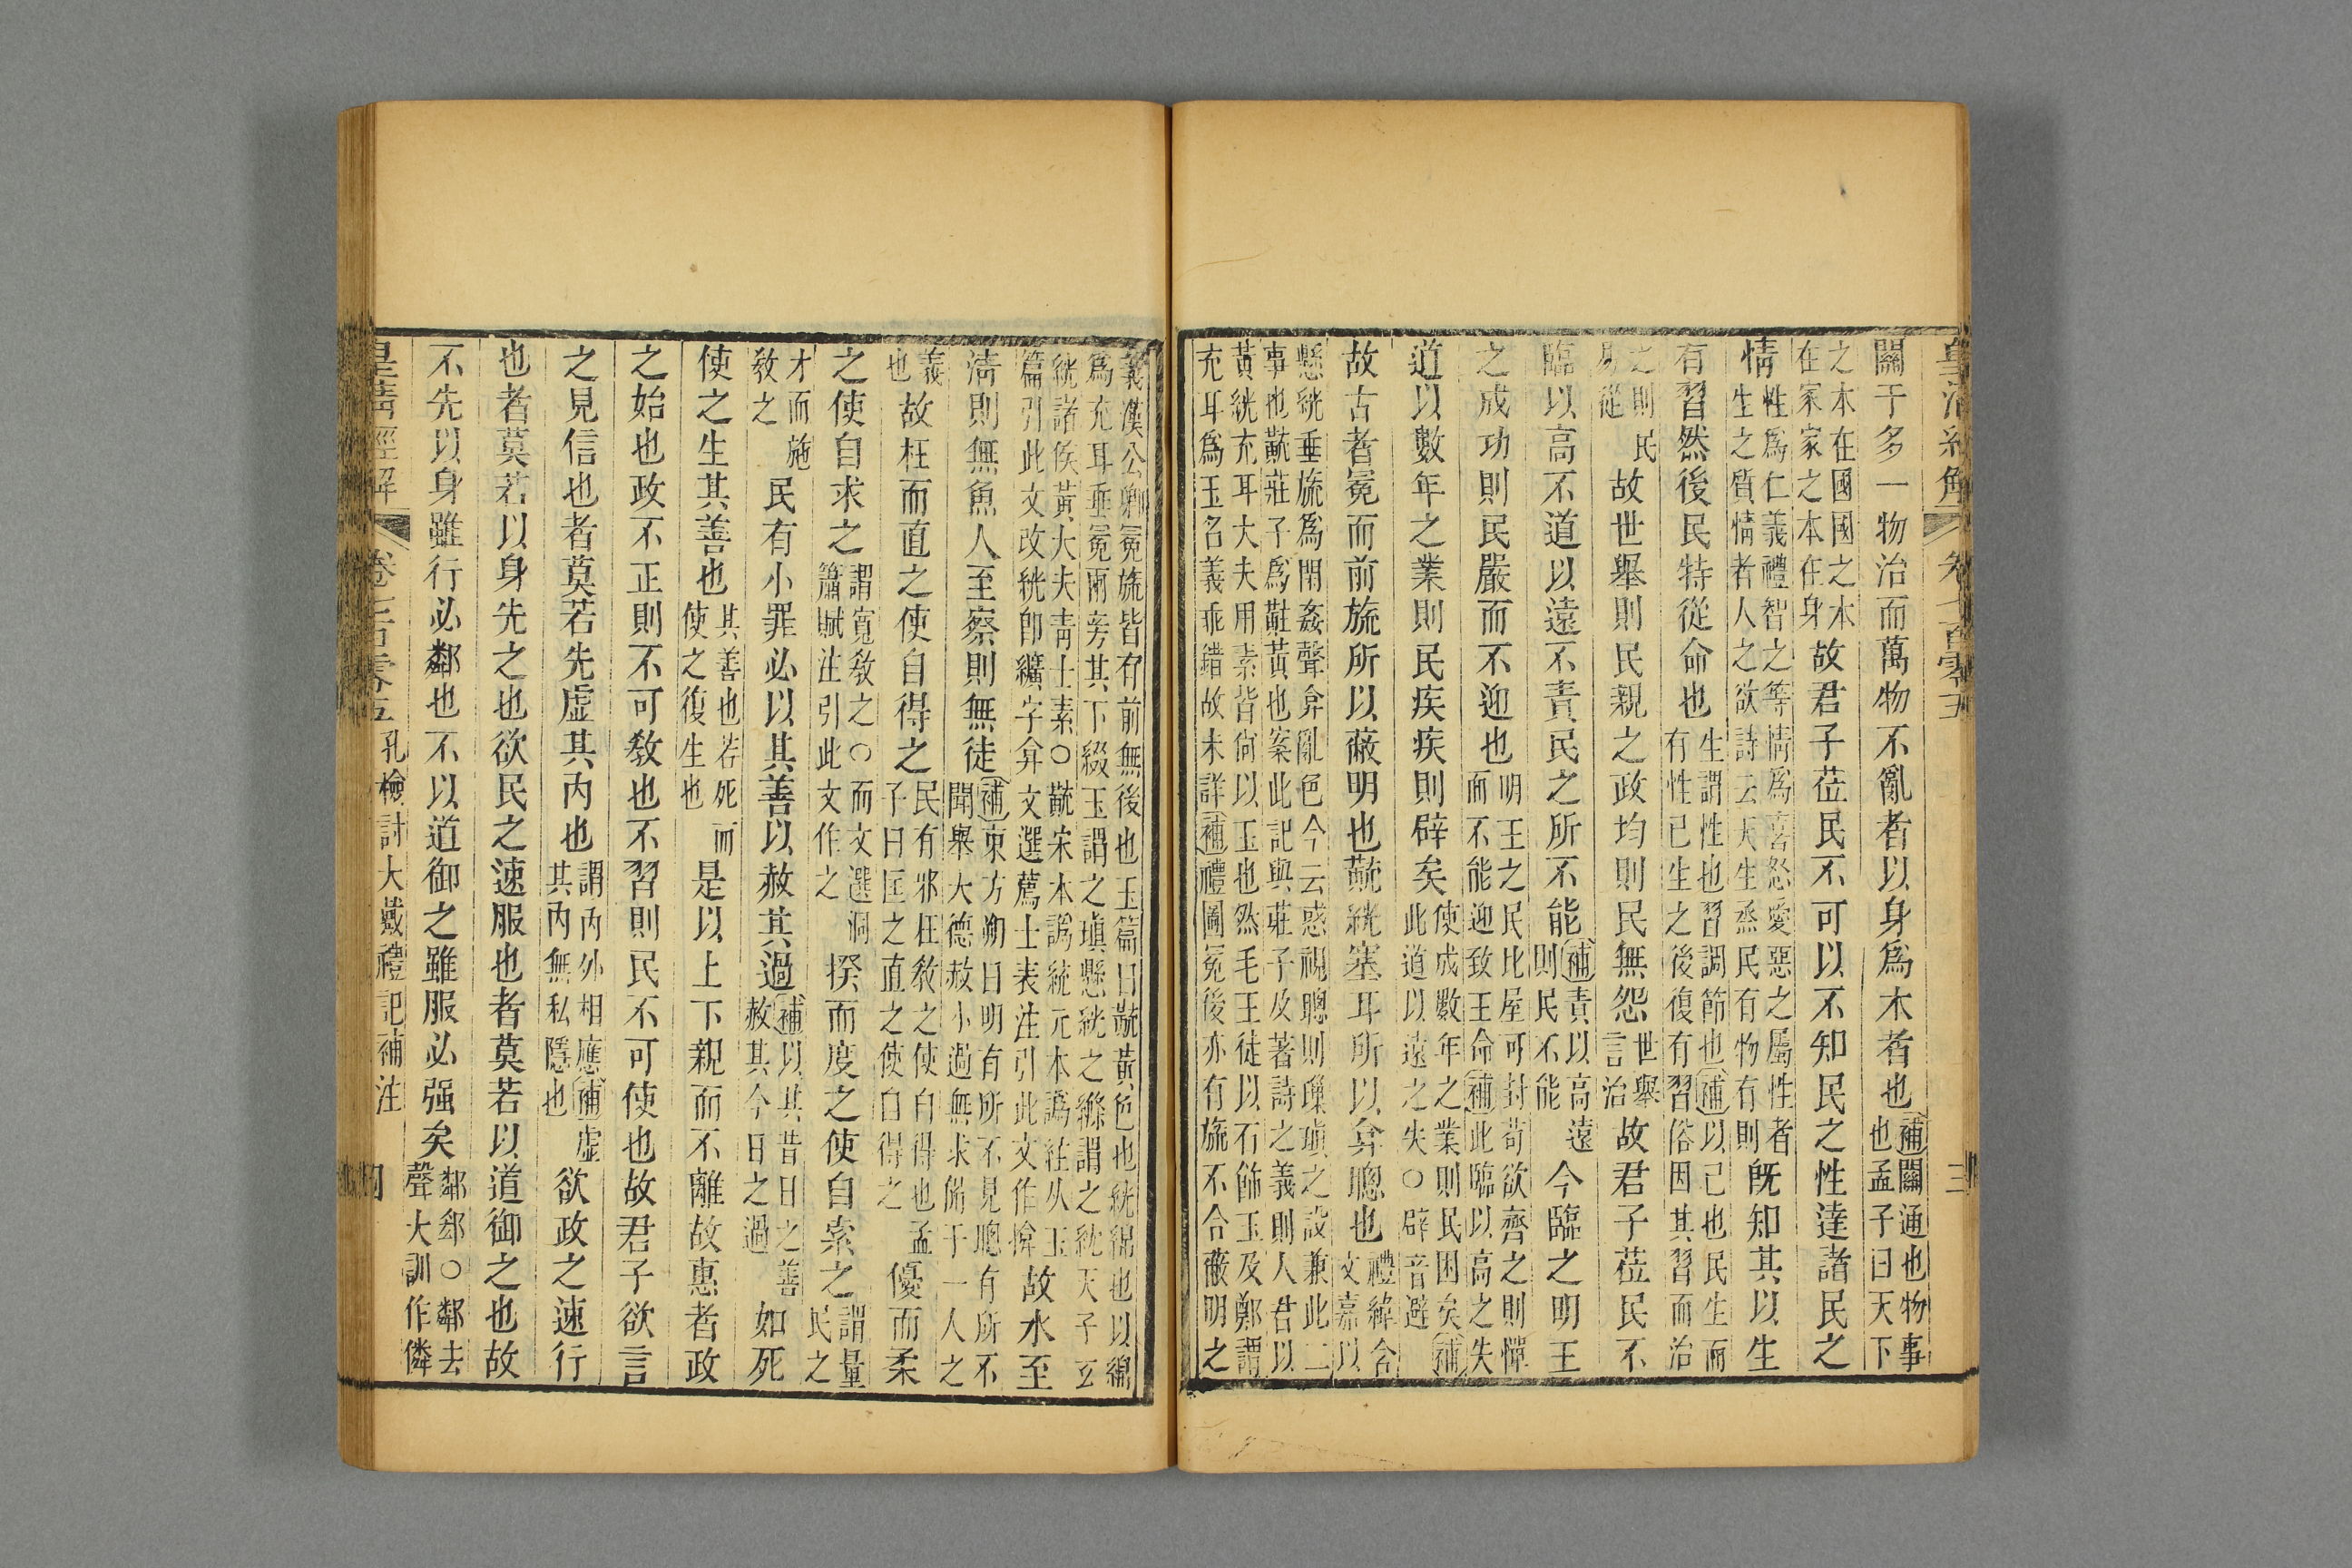 皇清經解 卷七百零五 三
關于多一物治而萬物不亂者以身爲本者也補關通也物事也孟子曰天下
之本在國國之本在家家之本在身故君子莅民不可以不知民之性達諸民之
情性爲仁義禮智之等情爲喜怒愛惡之屬性者生之質情者人之欲詩云天生烝民有物有則旣知其以生
有習然後民特從命也生謂性也習調節也補以已也民生而有性已生之後復有習俗因其習而治
之則民易從故世舉則民親之政均則民無怨世舉言治故君子莅民不
臨以高不道以遠不責民之所不能補責以高遠則民不能今臨之明王
之成功則民嚴而不迎也明王之民比屋可封苟欲齊之則憚而不能迎致王命補此臨以高之失
道以數年之業則民疾疾則辟矣使成數年之業則民困矣補此道以遠之失○辟音避
故古者冕而前旒所以蔽明也黈絖塞耳所以弇聰也禮緯含文嘉以
懸絖垂旒爲閉姦聲弇亂色今云惑視聰則璅瑱之設兼此二事也黈莊子爲黈黃也案此記與莊子及著詩之義則人君以
黃絖充耳大夫用素皆尙以玉也然毛王徒以石飾玉及鄭謂充耳爲玉名義乖錯故未詳補禮圖冕後亦有旒不合蔽明之
義漢公卿冕旒皆有前無後也玉篇曰黈黃色也絖綿也以綿爲充耳垂冕兩旁其下綴玉謂之瑱懸絖之縧謂之紞天子玄
絖諸侯黃大夫靑士素○黈宋本譌統元本譌絓从玉篇引此文改絖卽纊字弇文選薦士表注引此文作揜故水至
淸則無魚人至察則無徒補東方朔曰明有所不見聰有所不聞舉大德赦小過無求備于一人之
義也故枉而直之使自得之民有邪枉敎之使自得也孟子曰匡之直之使自得之優而柔
之使自求之謂寬敎之○而文選洞簫賦注引此文作之揆而度之使自索之謂量民之
才而施敎之民有小罪必以其善以赦其過補以其昔日之善赦其今日之過如死
使之生其善也其善也若死而使之復生也是以上下親而不離故惠者政
之始也政不正則不可敎也不習則民不可使也故君子欲言
之見信也者莫若先虛其內也謂內外相應補虛其內無私隱也欲政之速行
也者莫若以身先之也欲民之速服也者莫若以道御之也故
不先以身雖行必鄰也不以道御之雖服必强矣鄰郄○鄰去聲大訓作憐
皇清經解 卷七百零五 孔檢討大戴禮記補注 四